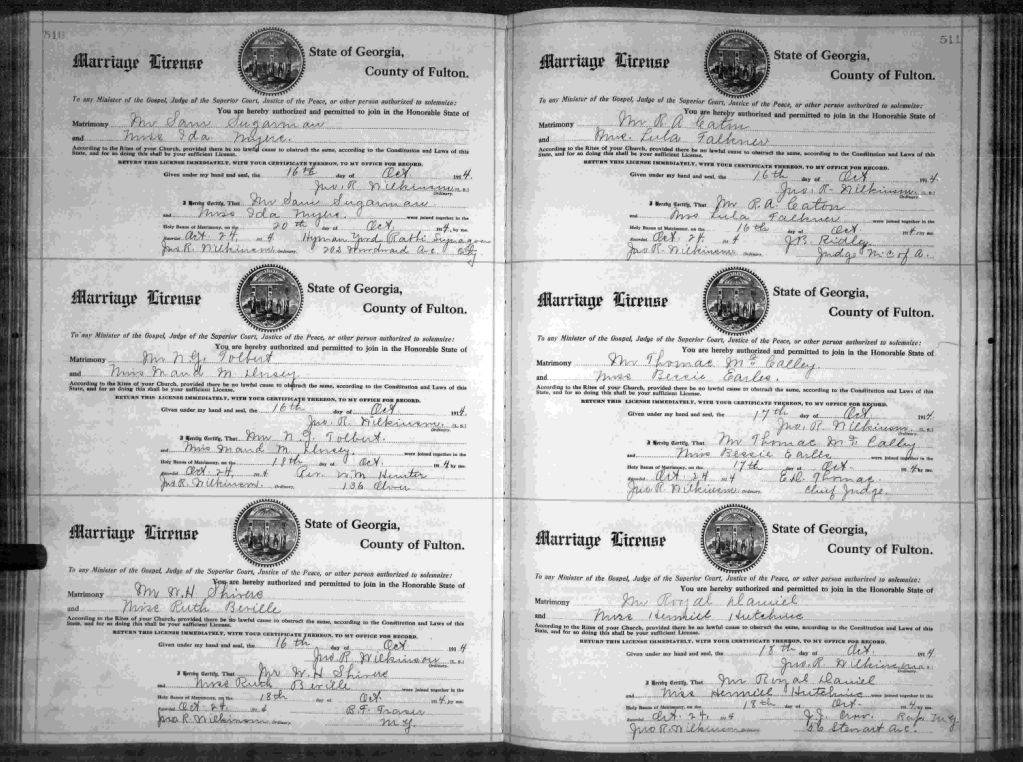 510
Marriage License
State of Georgia,
County of Fulton.
To any Minister of the Gospel, Judge of the Superior Court, Justice of the Peace, or other person authorized to solemnize:
You are hereby authorized and permitted to join in the Honorable State of
Matrimony Mr Sam Sugarman
and Miss Ida Myers.
According to the Rites of your Church, provided there be no lawful cause to obstruct the same, according to the Constitution and Laws of this
State, and for so doing this shall be your sufficient License.
RETURN THIS LICENSE IMMEDIATELY, WITH YOUR CERTIFICATE THEREON, TO MY OFFICE FOR RECORD.
Given under my hand and seal, the 16th day of Oct 1914
Jno. R. Wilkinson (L. S.)
Ordinary.
I Hereby Certify, That Mr Sam Sugarman
and Miss Ida Myers. were joined together in the
Holy Banns of Matrimony, on the 20th day of Oct. 1914, by me.
Recorded Oct. 24, 1914 Hyman Rabbi
Jno R. Wilkinson Ordinary. 202 Woodward Ave. City
Marriage License
State of Georgia,
County of Fulton.
To any Minister of the Gospel, Judge of the Superior Court, Justice of the Peace, or other person authorized to solemnize:
You are hereby authorized and permitted to join in the Honorable State of
Matrimony Mr N.G. Tolbert
and Miss Maud M
According to the Rites of your Church, provided there be no lawful cause to obstruct the same, according to the Constitution and Laws of this
State, and for so doing this shall be your sufficient License.
RETURN THIS LICENSE IMMEDIATELY, WITH YOUR CERTIFICATE THEREON, TO MY OFFICE FOR RECORD.
Given under my hand and seal, the 16th day of Oct. 1914
Jno. R. Wilkinson (L. S.)
Ordinary.
I Hereby Certify, That Mr N.G. Tolbert.
and Miss Maud M were joined together in the
Holy Banns of Matrimony, on the 18th day of Oct. 1914 by me.
Recorded Oct. 24, 1914 Rev. W.M Hunter
Jno R. Wilkinson Ordinary. 136 Oliver
Marriage License
State of Georgia,
County of Fulton.
To any Minister of the Gospel, Judge of the Superior Court, Justice of the Peace, or other person authorized to solemnize:
You are hereby authorized and permitted to join in the Honorable State of
Matrimony Mr W.H Shivers
and Miss Ruth Beville
According to the Rites of your Church, provided there be no lawful cause to obstruct the same, according to the Constitution and Laws of this
State, and for so doing this shall be your sufficient License.
RETURN THIS LICENSE IMMEDIATELY, WITH YOUR CERTIFICATE THEREON, TO MY OFFICE FOR RECORD.
Given under my hand and seal, the 16th day of Oct 1914
Jno R. Wilkinson (L. S.)
Ordinary.
I Hereby Certify, That Mr W.H Shivers
and Miss Ruth Beville were joined together in the
Holy Banns of Matrimony, on the 18th day of Oct 1914, by me.
Recorded Oct 24. 1914 B.F. Fraser
Jno R. Wilkinson Ordinary. M.G.
511
Marriage License
State of Georgia,
County of Fulton.
To any Minister of the Gospel, Judge of the Superior Court, Justice of the Peace, or other person authorized to solemnize:
You are hereby authorized and permitted to join in the Honorable State of
Matrimony Mr R.A Eaton
and Miss Lula Falkner
According to the Rites of your Church, provided there be no lawful cause to obstruct the same, according to the Constitution and Laws of this
State, and for so doing this shall be your sufficient License.
RETURN THIS LICENSE IMMEDIATELY, WITH YOUR CERTIFICATE THEREON, TO MY OFFICE FOR RECORD.
Given under my hand and seal, the 16th day of Oct. 1914
Jno. R. Wilkinson (L. S.)
Ordinary.
I Hereby Certify, That Mr R.A. Eaton
and Miss Lula Falkner were joined together in the
Holy Banns of Matrimony, on the 16th day of Oct 1914, by me.
Recorded Oct 24 1914 J.B. Ridley
Jno R. Wilkinson Ordinary. Judge M.C of A.
Marriage License
State of Georgia,
County of Fulton.
To any Minister of the Gospel, Judge of the Superior Court, Justice of the Peace, or other person authorized to solemnize:
You are hereby authorized and permitted to join in the Honorable State of
Matrimony Mr Thomas McCalley
and Miss Bessie Earles.
According to the Rites of your Church, provided there be no lawful cause to obstruct the same, according to the Constitution and Laws of this
State, and for so doing this shall be your sufficient License.
RETURN THIS LICENSE IMMEDIATELY, WITH YOUR CERTIFICATE THEREON, TO MY OFFICE FOR RECORD.
Given under my hand and seal, the 17th day of Oct. 1914
Jno. R. Wilkinson (L. S.)
Ordinary.
I Hereby Certify, That Mr Thomas McCalley
and Miss Bessie Earles were joined together in the
Holy Banns of Matrimony, on the 17th day of Oct. 1914 by me.
Recorded Oct. 24 1914 E.D. Thomas
Jno R. Wilkinson Ordinary. Chief Judge.
Marriage License
State of Georgia,
County of Fulton.
To any Minister of the Gospel, Judge of the Superior Court, Justice of the Peace, or other person authorized to solemnize:
You are hereby authorized and permitted to join in the Honorable State of
Matrimony Mr Royal Daniel
and Miss Hutchins
According to the Rites of your Church, provided there be no lawful cause to obstruct the same, according to the Constitution and Laws of this
State, and for so doing this shall be your sufficient License.
RETURN THIS LICENSE IMMEDIATELY, WITH YOUR CERTIFICATE THEREON, TO MY OFFICE FOR RECORD.
Given under my hand and seal, the 18th day of Oct. 1914
Jno. R. Wilkinson (L. S.)
Ordinary.
I Hereby Certify, That Mr Royal Daniel
and Miss Hutchins were joined together in the
Holy Banns of Matrimony, on the 18th day of Oct. 1914, by me.
Recorded Oct. 24, 1914 J.J.
Jno R. Wilkinson Ordinary. Stewart Ave.